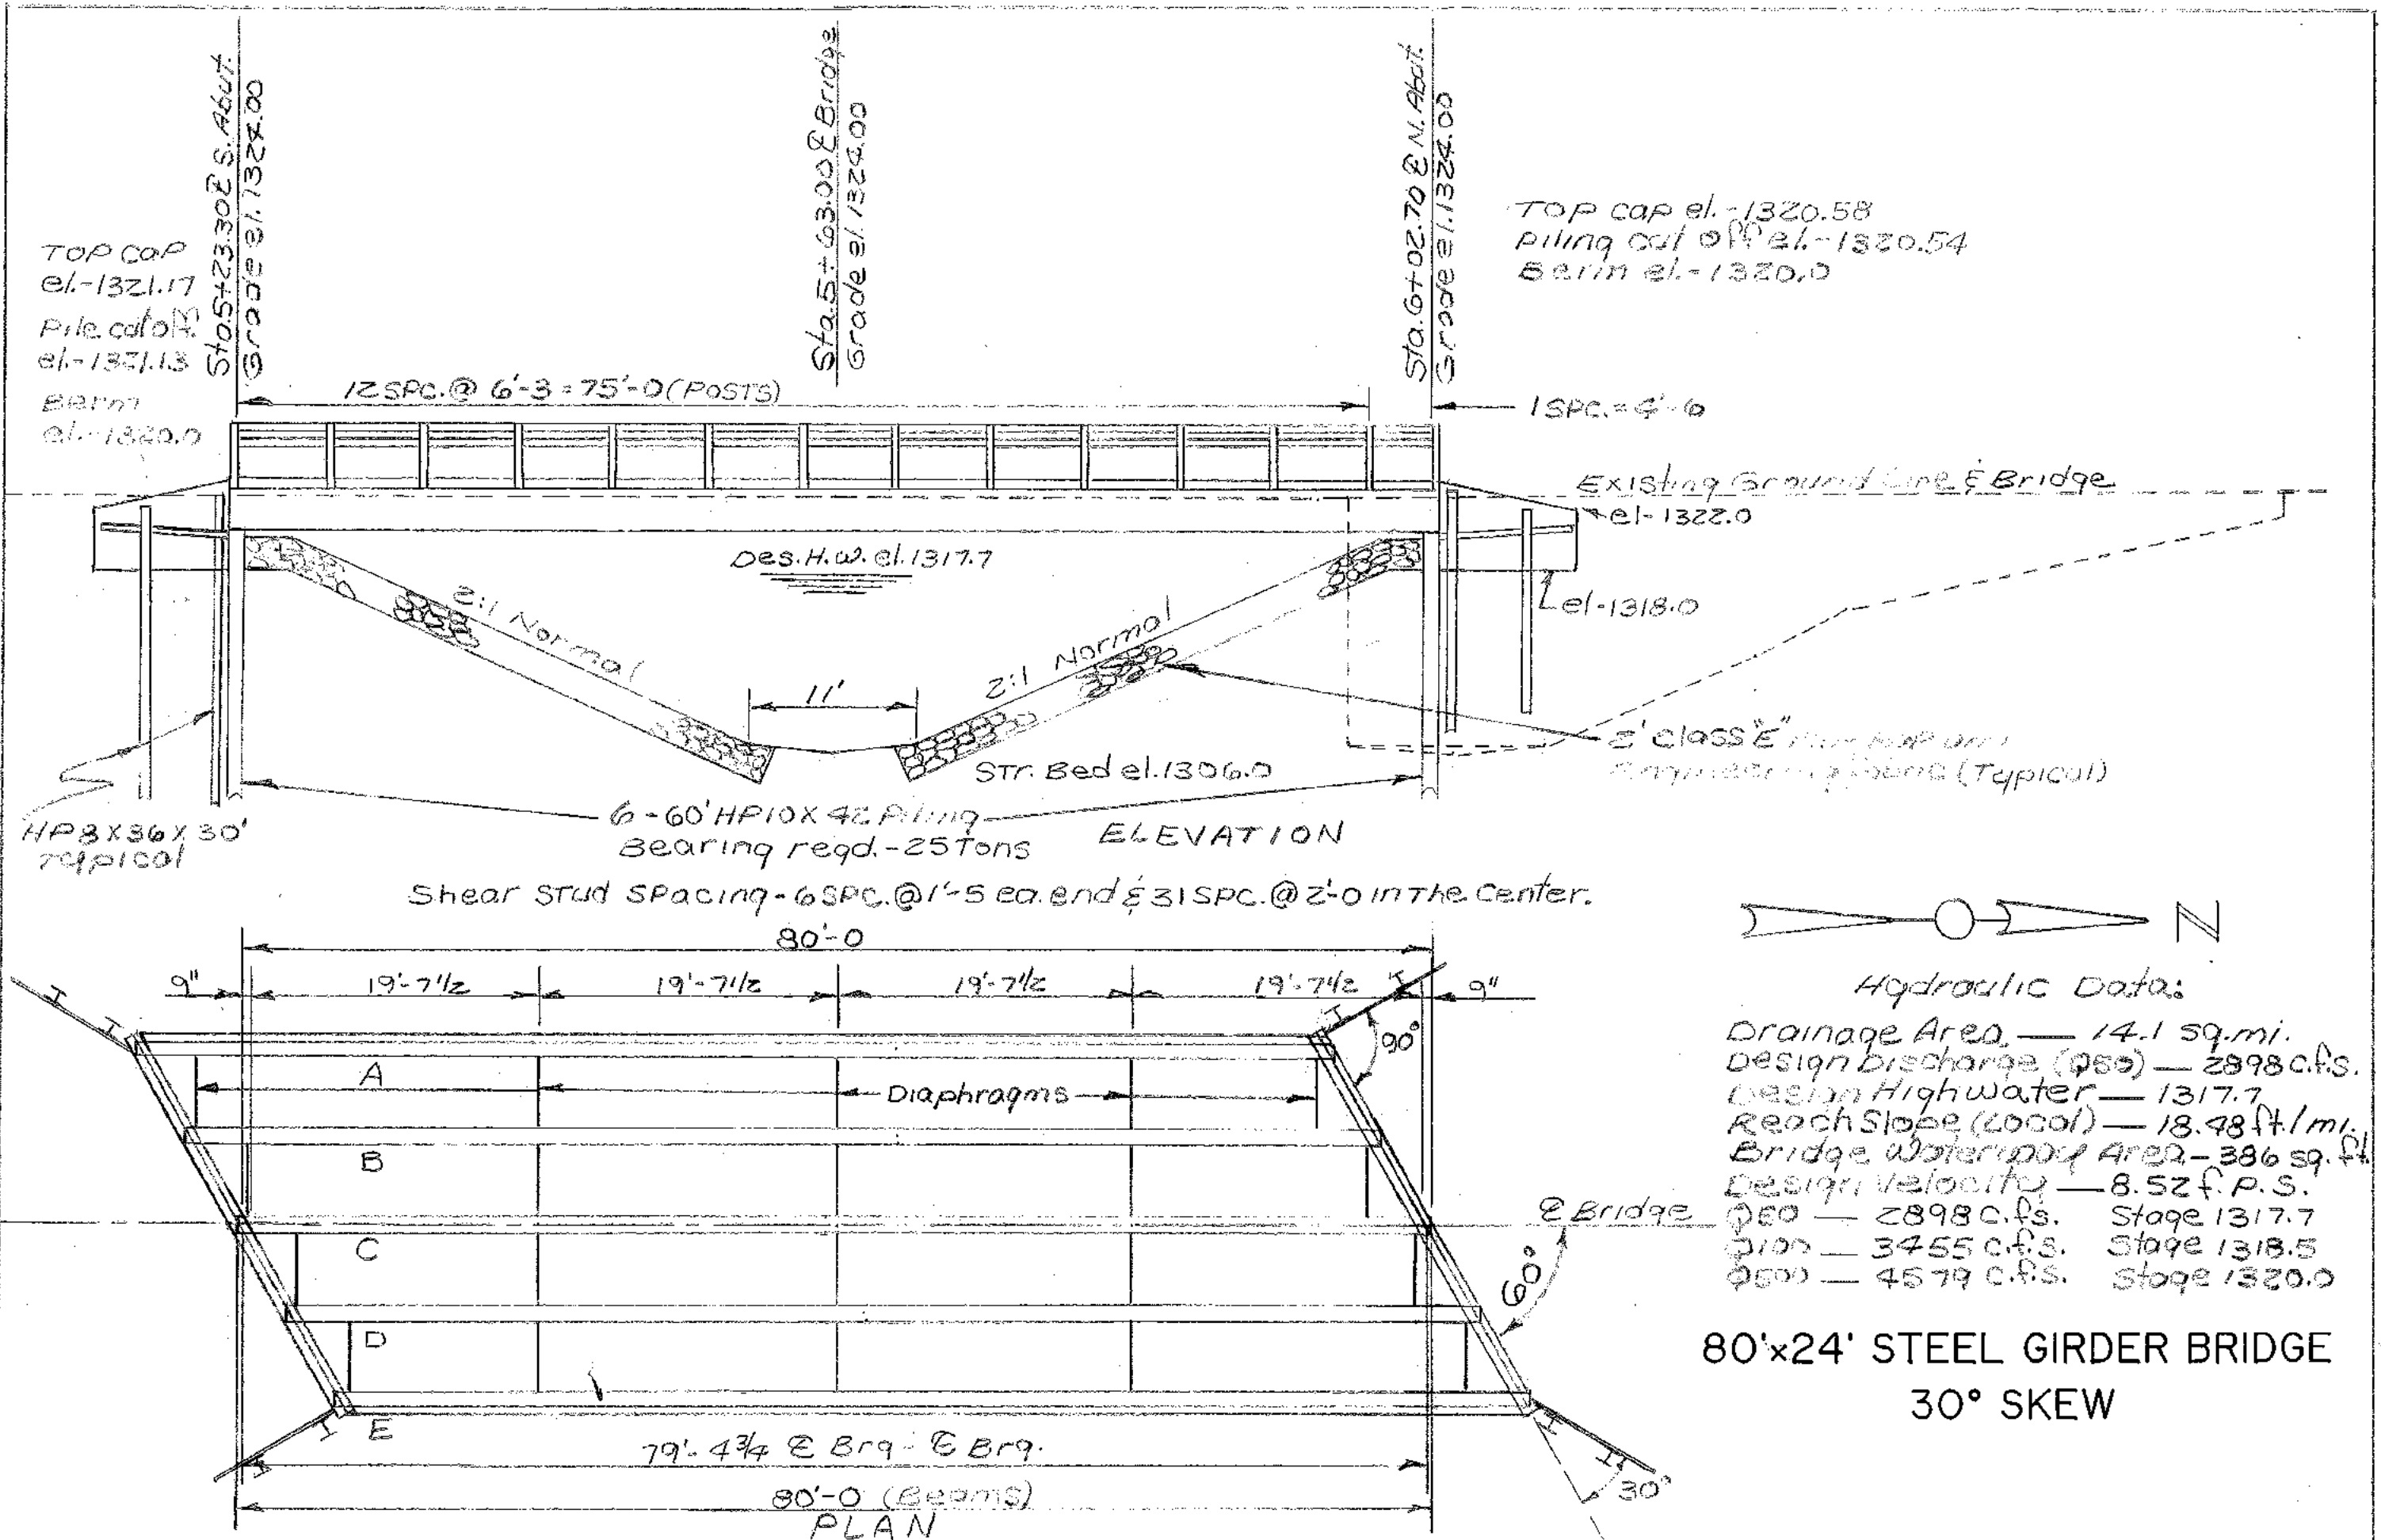 Sta.5+23.30 ℄ S. Abut.
Grade el. 1324.00
Sta.5+63.00 ℄ Bridge
Grade el. 1324.00
Sta.6+02.70 ℄ N. Abut.
Grade el. 1324.00
TOP CAP
el.-1321.17
Pile cut off
el.-1321.13
Berm
el.-1320.0
TOP cap el.-1320.58
Piling cut off el.-1320.54
Berm el.-1320.0
12 SPC. @ 6'-3 = 75'-0 (POSTS)
1 SPC. = 4'-6
Existing Ground Line & Bridge
el-1322.0
Des. H.W. el. 1317.7
2:1 Normal
2:1 Normal
el-1318.0
11'
Str. Bed el. 1306.0
2' Class "E"
(Typical)
HP8X36X30'
Typical
6-60' HP10X42 Piling
Bearing reqd.-25 Tons
ELEVATION
Shear Stud Spacing-6 SPC. @ 1'-5 ea. end & 31 SPC. @ 2'-0 in The Center.
80'-0
9"
19'-7 1/2
19'-7 1/2
19'-7 1/2
19'-7 1/2
9"
N
90°
A
Diaphragms
B
C
D
E
℄ Bridge
60°
30°
79'-4 3/4 ℄ Brg - ℄ Brg.
80'-0 (Beams)
PLAN
Hydraulic Data:
Drainage Area — 14.1 sq. mi.
Design Discharge (Q50) — 2898 c.f.s.
Design Highwater — 1317.7
Reach Slope (Local) — 18.48 ft./mi.
Bridge Waterway Area - 386 sq. ft.
Design Velocity — 8.52 f.p.s.
Q50 — 2898 c.f.s. Stage 1317.7
Q100 — 3455 c.f.s. Stage 1318.5
Q500 — 4579 c.f.s. Stage 1320.0
80'x24' STEEL GIRDER BRIDGE
30° SKEW